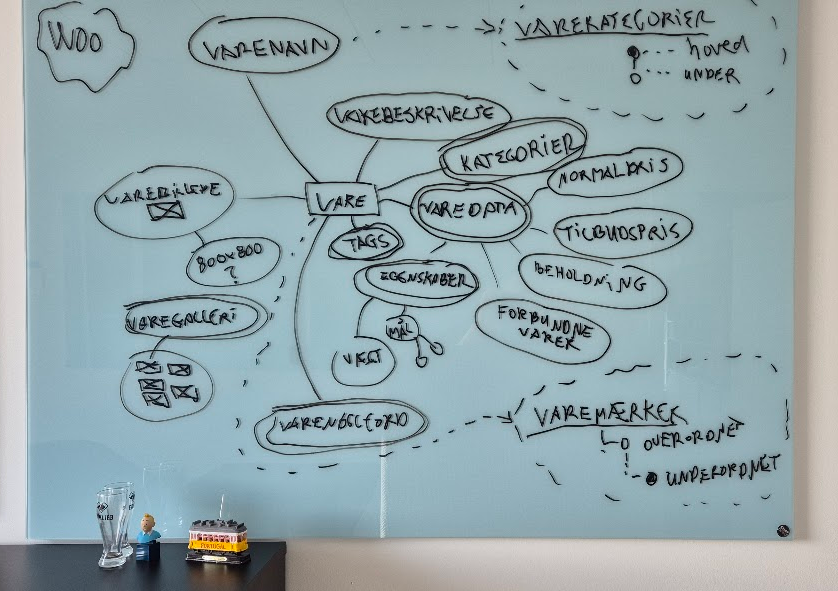 WOO
VARENAVN
VAREKATEGORIER
hoved
UNDER
VAREBESKRIVELSE
KATEGORIER
NORMALPRIS
VAREBILLEDE
VARE
VAREDATA
TILBUDSPRIS
TAGS
800x800
?
EGENSKABER
BEHOLDNING
VAREGALLERI
MÅL
FORBUNDNE
VARER
VÆGT
VARENØGLEORD
VAREMÆRKER
OVERORDNET
UNDERORDNET
PORTUGAL